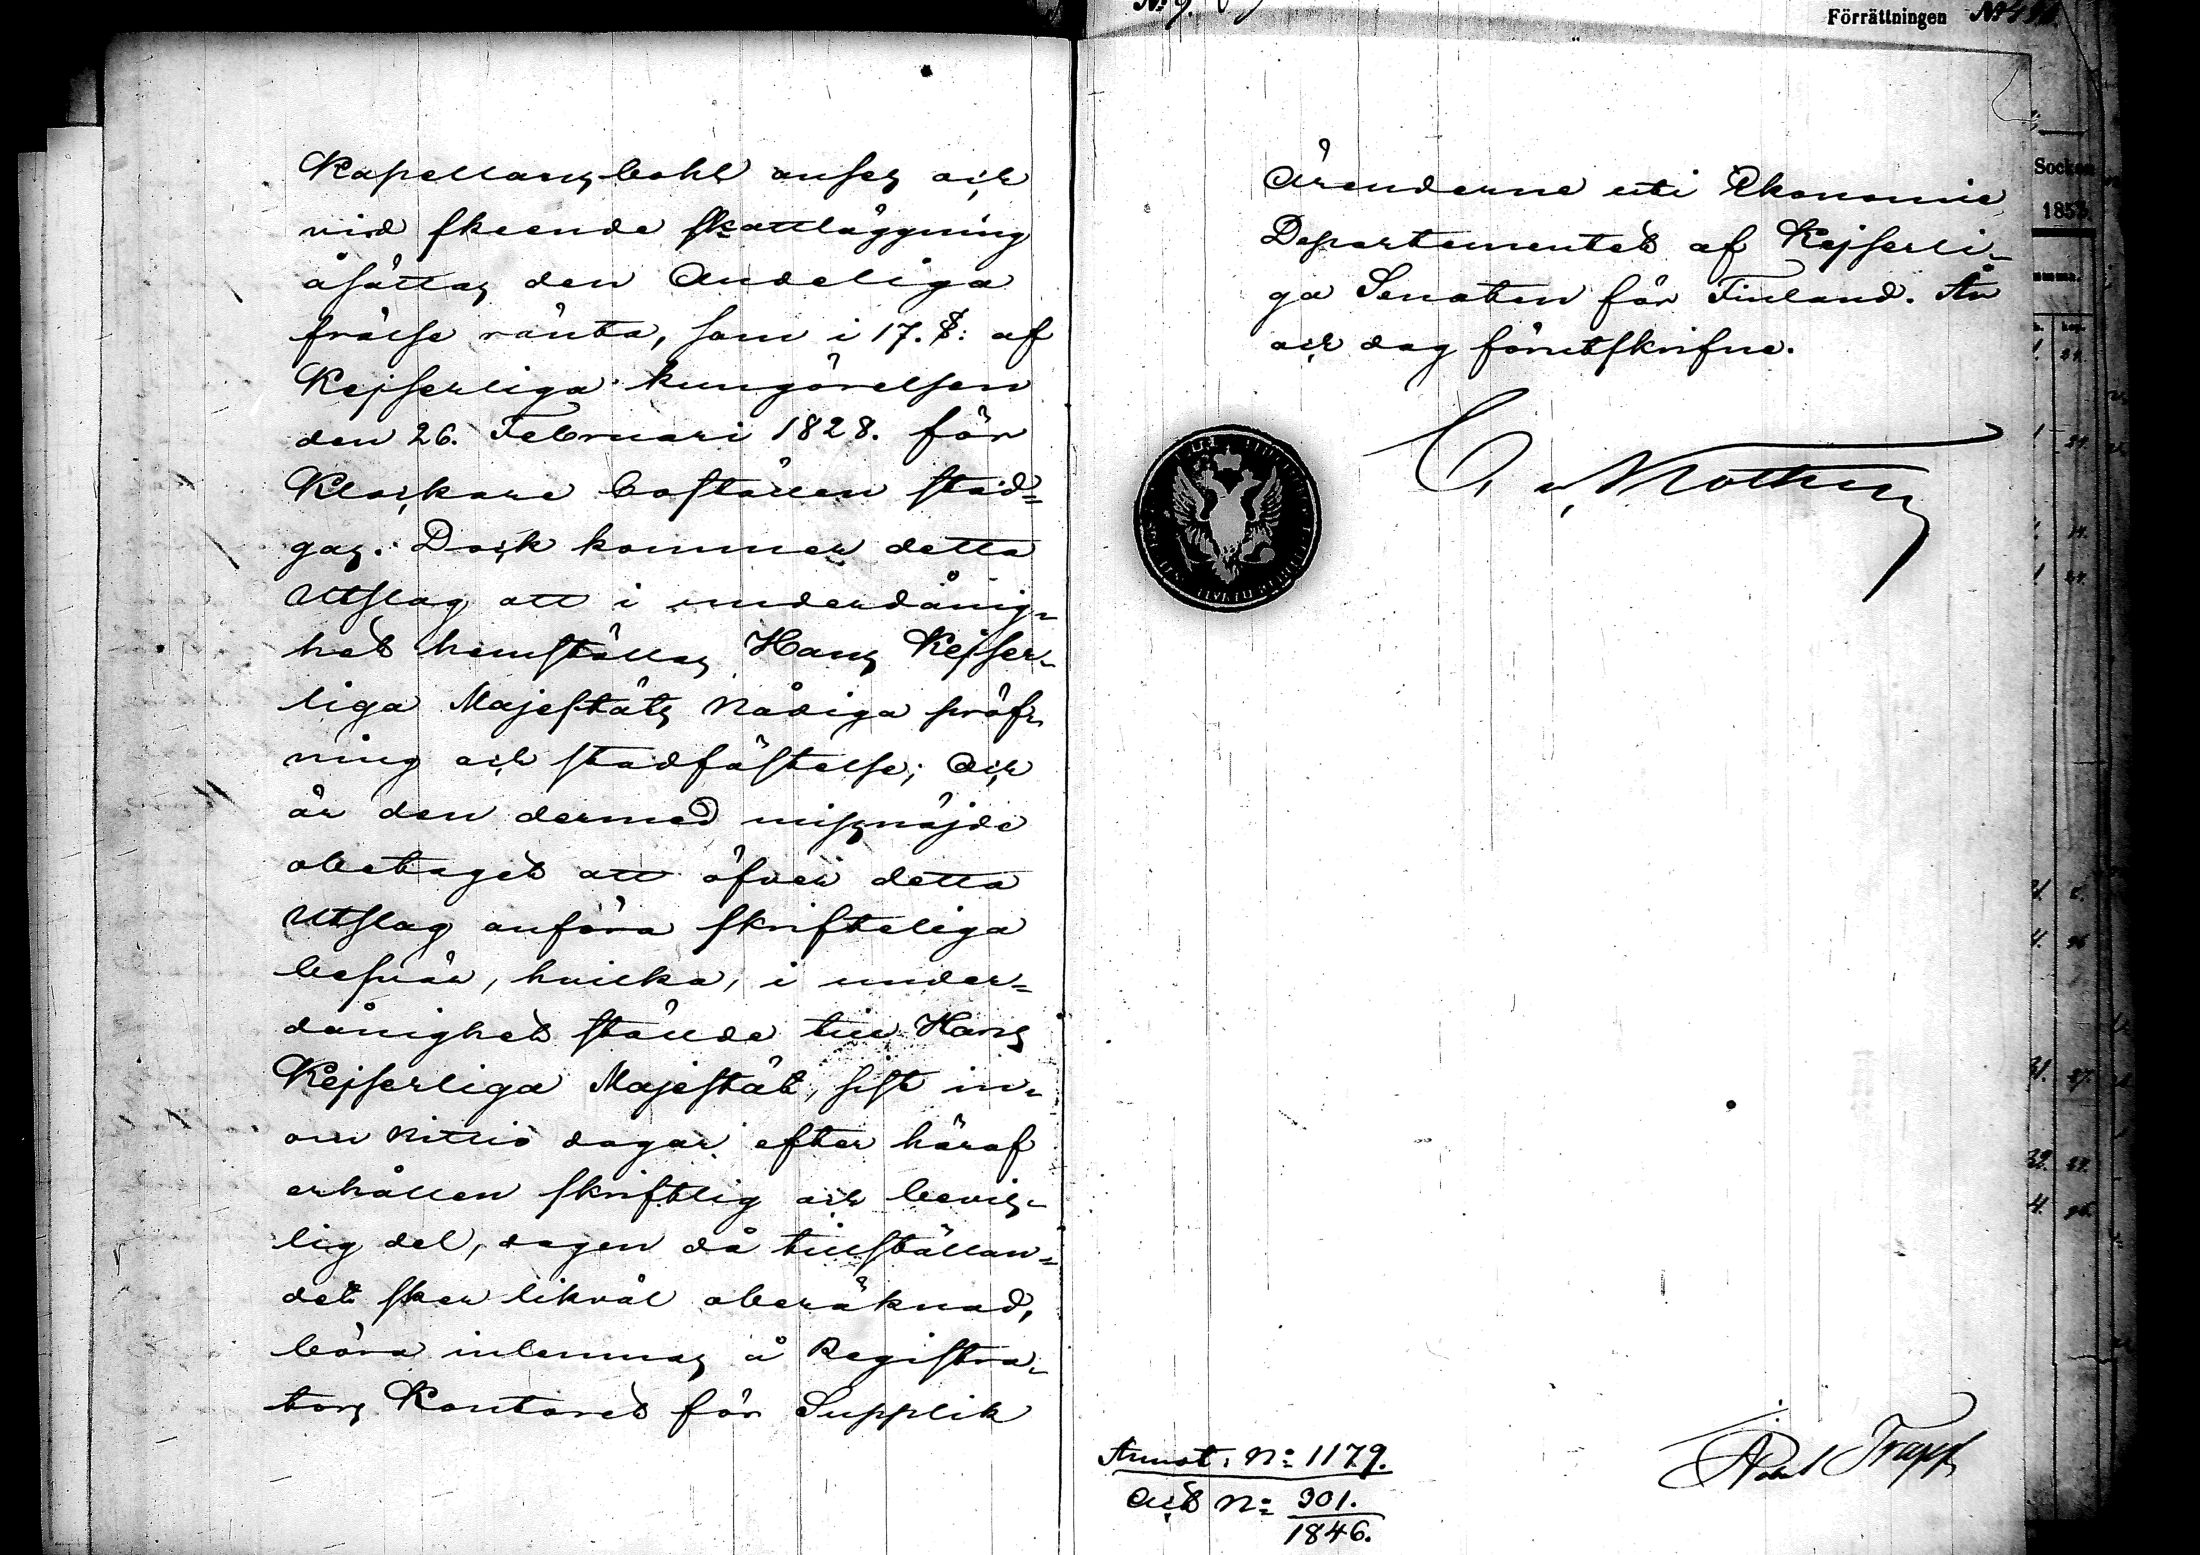 Kapellansbohl anses och
vid skeende skattläggning
åsättas den Andeliga
frälse ränta, som i 17. §: af
Kejserliga kungörelsen
den 26. Februari 1828. för
Klockare boställen stad=
gas. Dock kommer detta
Utslag att i underdånig-
het hemställas Hans Kejser-
liga Majestäts Nådiga pröf-
ning och stadfästelse; Och
är den dermed missnöjde
obetaget att öfver detta
Utslag anföra skrifteliga
besvär, hvilka, i under=
dånighet stälde till Hans
Kejserliga Majestät, sist in-
om Nittio dagar efter häraf
erhållen skriftlig och bevis-
lig del, dagen då tillställan=
det sker likväl oberäknad,
böra inlemnas å Registra-
tors Kontoret för Supplik
Förrättningen
Ärenderne uti Ekonomie
Departementet af Kejserli-
ga Senaten för Finland. År
och dag förutskrifne.
Annot. No: 1179.
Act No: 301.
1846.
Trapp
Socken
1853.